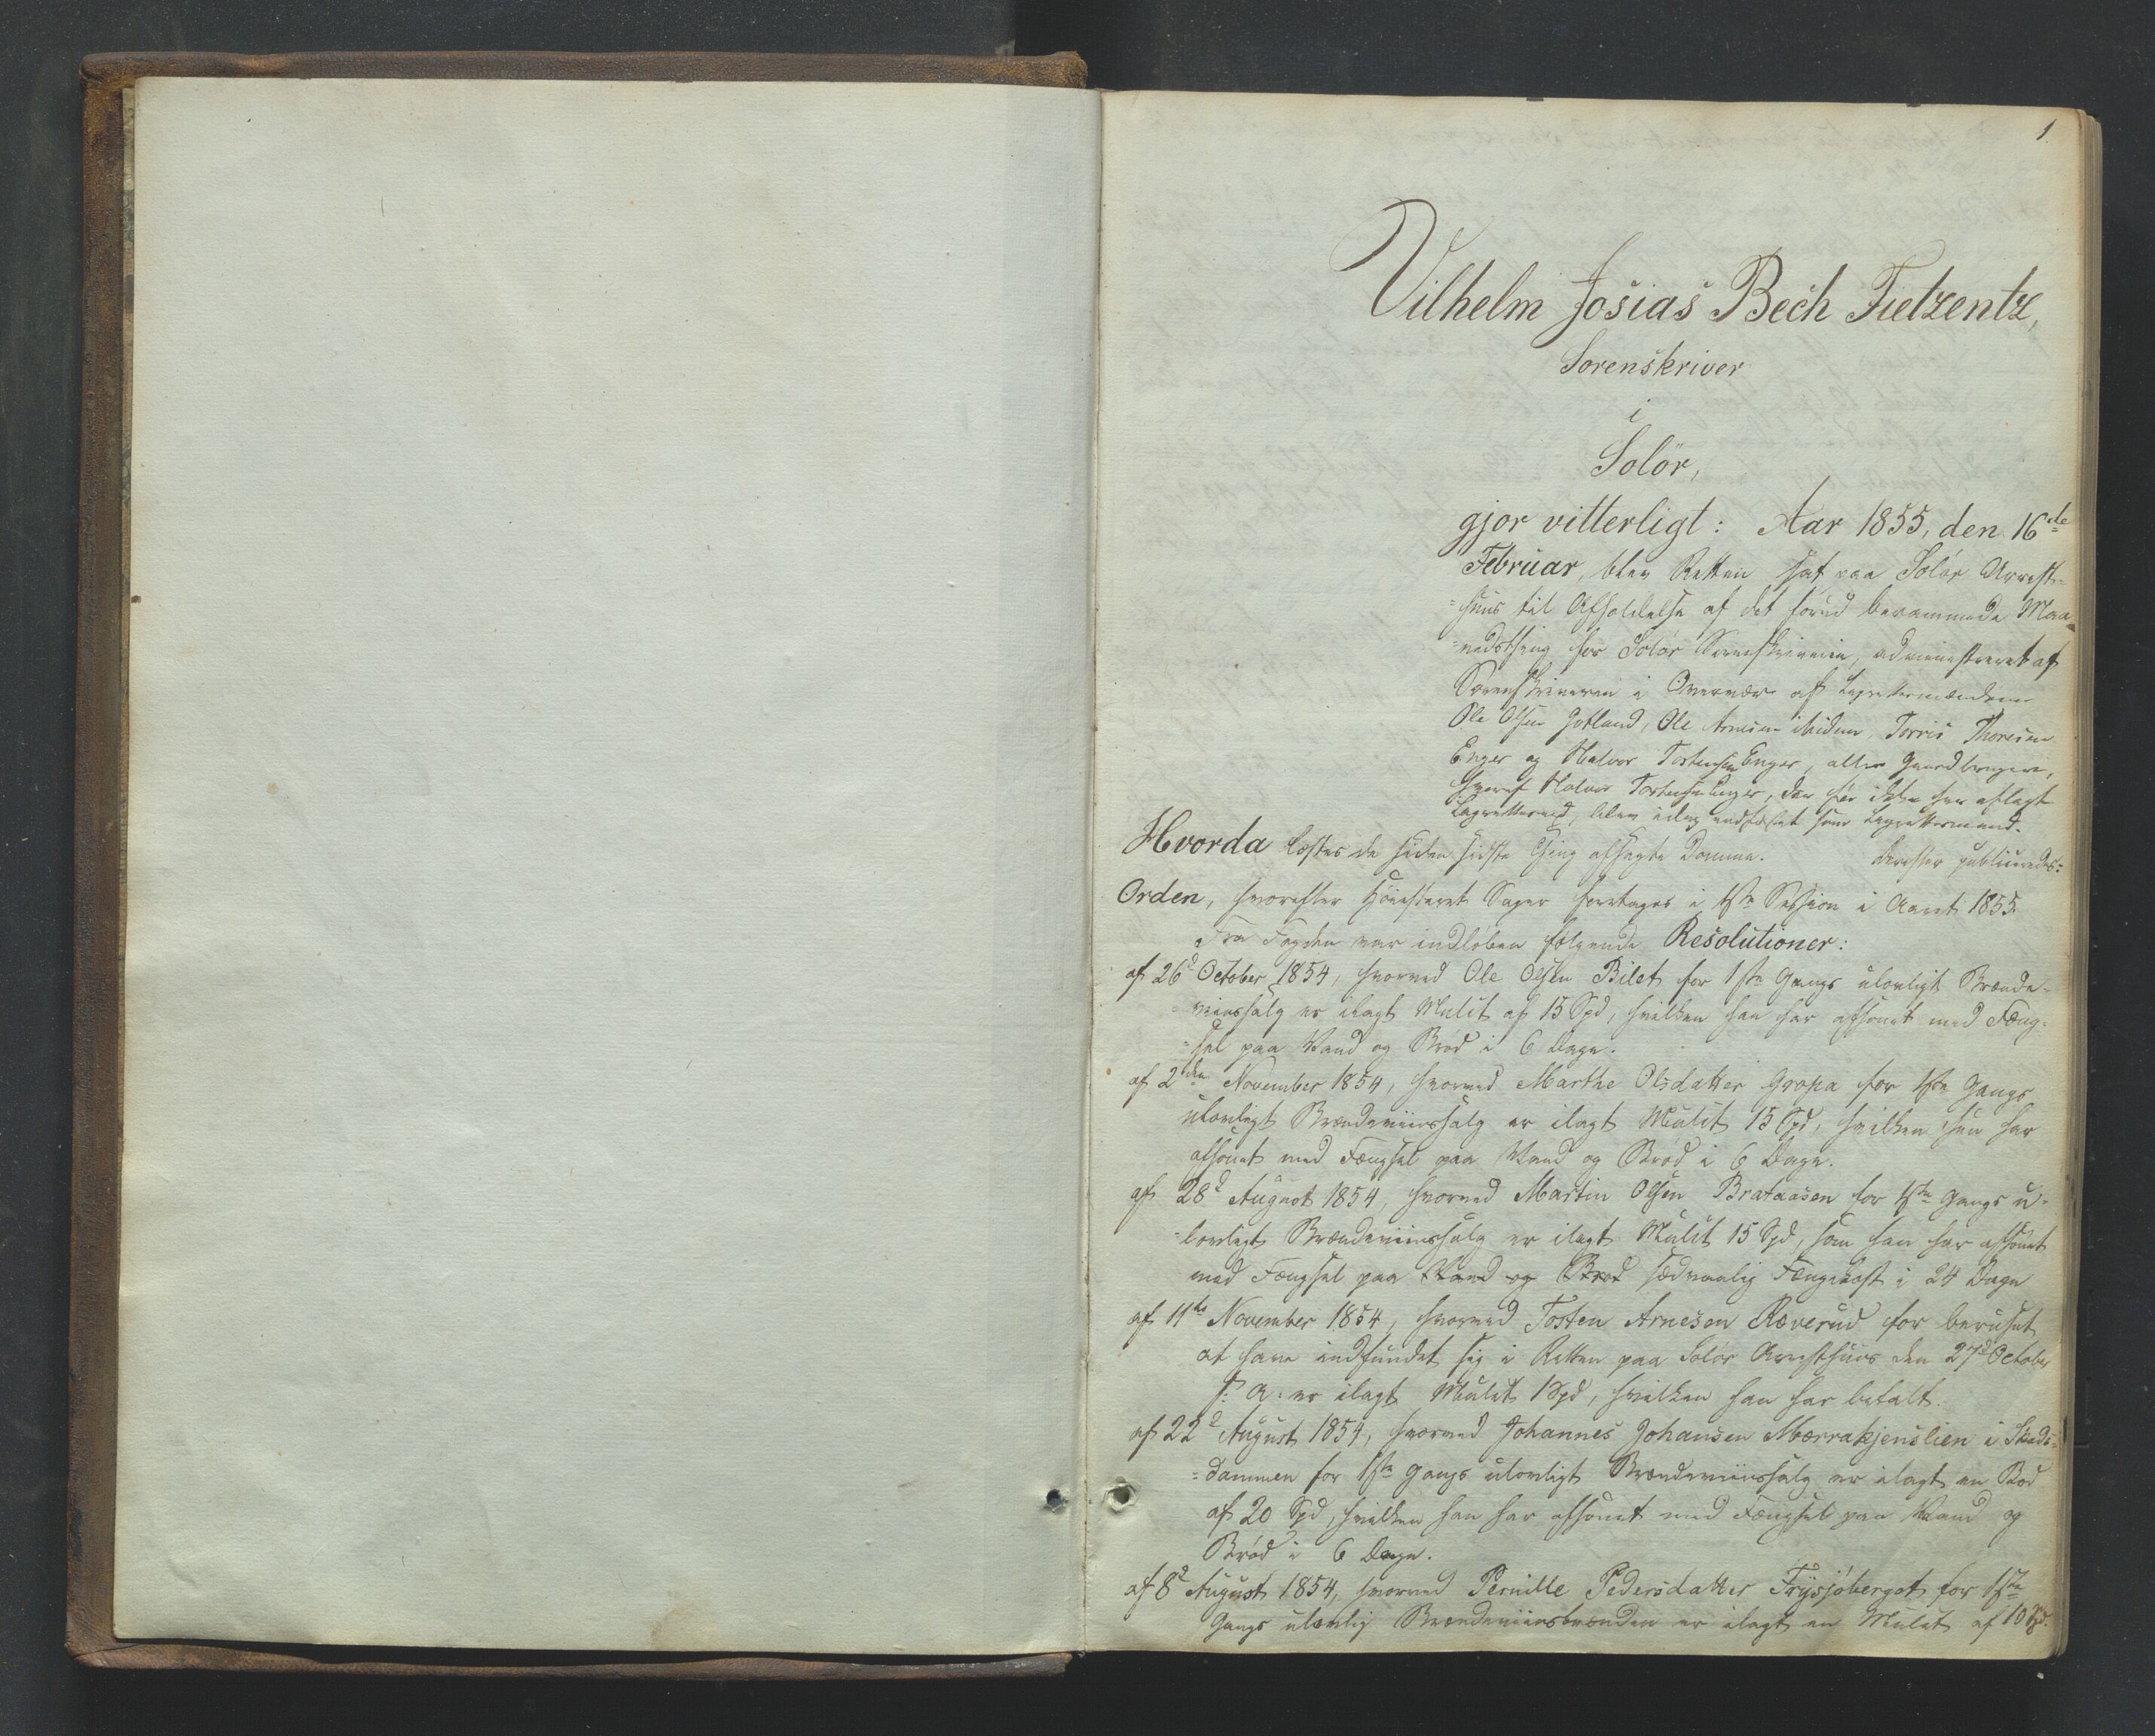 1
Vilhelm Josias Bech Fietzentz,
Sorenskriver
i
Solör,
gjor vitterligt: Aar 1855, den 16de
Februar, blev Retten sat paa Solør Arrest-
=huus til Afholdelse af det forud berammede Maa-
=nedsthing for Solør Sorenskriverie, administreret af
Sorenskriveren i Overvær af Lagrettesmændene
Ole Olsen Jotland, Ole Arnesen, Torris Thoresen
Enger og Halvor Tostensen Enger, alle Gaardbrugere,
hvoraf Halvor Tostensen Enger, der før ikke har aflagt
Lagretteseed, blev idag edfæstet som Lagrettesmand.
Hvorda læstes de siden sidste Thing afsagte Domme. Derefter publiceredes:
Orden, hvorefter Høiesteret Sager foretages i 1ste Session i Aaret 1855.
Fra Fogden var indløben følgende Resolutioner:
af 26d October 1854, hvorved Ole Olsen Bilet for 1ste Gangs ulovligt Brænde-
=viinssalg er ilagt Mulct af 15 Spd, hvilken han har afsonet med Fæng-
=sel paa Vand og Brød i 6 Dage.
af 2den November 1854, hvorved Marthe Olsdatter Gropa for 1ste Gangs
ulovligt Brændeviinssalg er ilagt Mulct 15 Spd, hvilken hun har
afsonet med Fængsel paa Vand og Brød i 6 Dage.
af 28d August 1854, hvorved Martin Olsen Brataasen for 1ste Gangs u-
=lovligt Brændeviinssalg er ilagt Mulct 15 Spd, som han har afsonet
med Fængsel paa Vand og Brød sædvanlig Fangekost i 24 Dage
af 11te November 1854, hvorved Tosten Arneson Ræverud for beruset
at have indfundet sig i Retten paa Solør Arresthuus den 27d October
f: A: er ilagt Mulct 1 Spd, hvilken han har betalt.
af 22d August 1854, hvorved Johannes Johansen Mærrakjenslien i
=dammen for 1ste Gangs ulovligt Brændeviinssalg er ilagt en Bod
af 20 Spd, hvilken han har afsonet med Fængsel paa Vand og
Brød i 6 Dage.
af 8d August 1854, hvorved Pernille Pedersdatter Frysjøberget for 1ste
Gangs ulovlig Brændeviinsbrænden er ilagt en Mulct af 10 Spd.